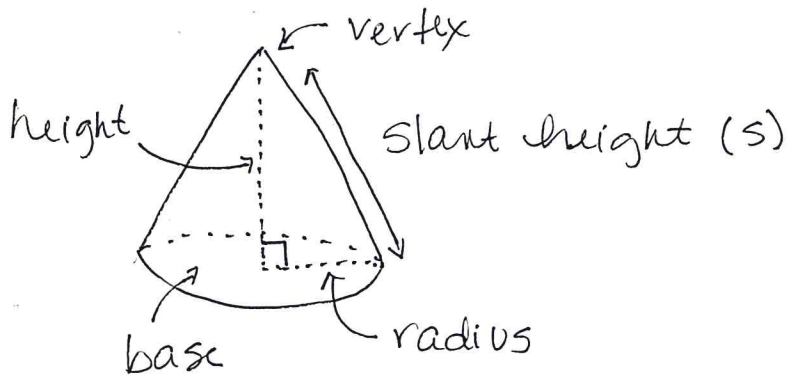 vertex
height
slant height (s)
base
radius